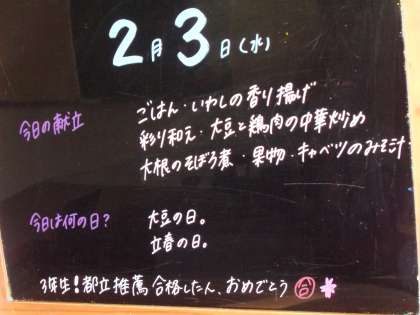 2月3日(水)
今日の献立
ごはん・いわしの香り揚げ
彩り和え・大豆と鶏肉の中華炒め
大根のそぼろ煮・果物・キャベツのみそ汁
今日は何の日?
大豆の日。
立春の日。
3年生!都立推薦 合格したん、おめでとう 合